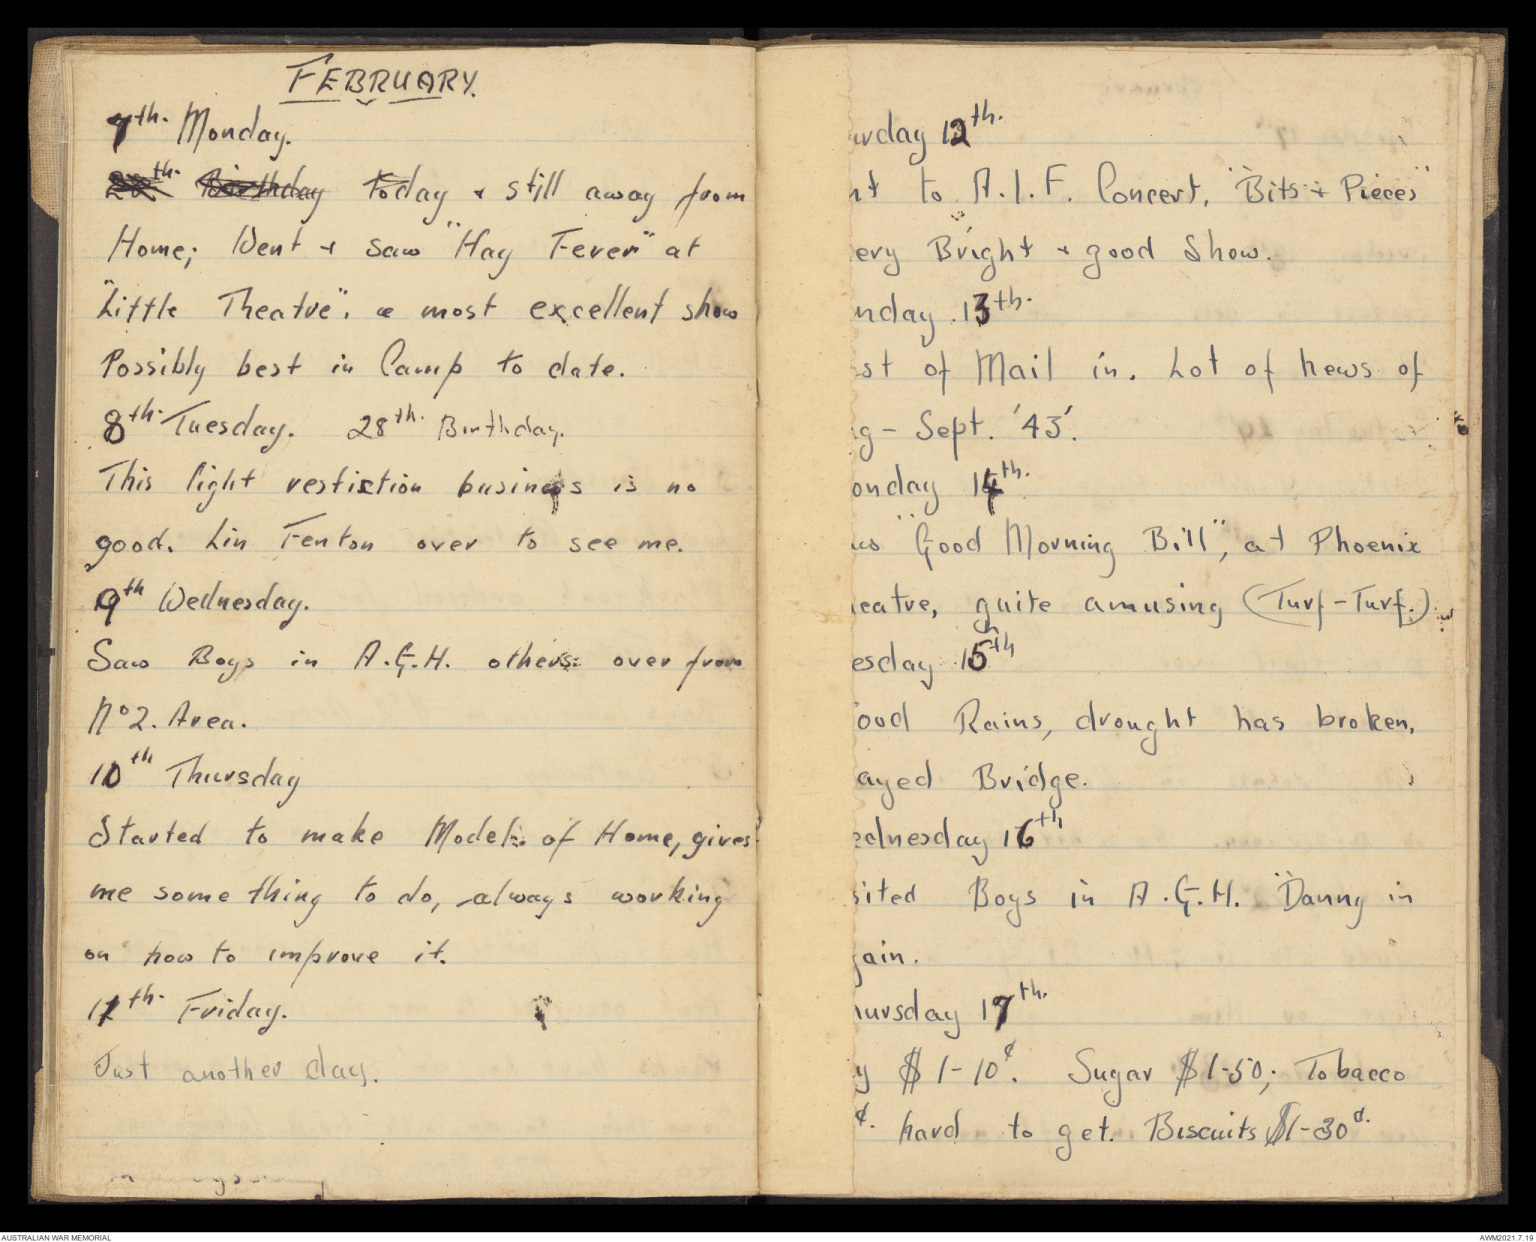 FEBRUARY.
7th. Monday.
28th. Birthday today & still away from
Home; Went & saw "Hay Fever" at
"Little Theatre". a most excellent show
Possibly best in Camp to date.
8th. Tuesday. 28th. Birthday.
This light restiction business is no
good. Lin Fenton over to see me.
9th Wednesday.
Saw Boys in A.G.H. others over from
No2. Area.
10th Thursday
Started to make Model of Home, gives
me some thing to do, always working
on how to improve it.
11th. Friday.
Just another day.
urday 12th.
nt to A.I.F. Concert, "Bits & Pieces"
ery Bright & good Show.
nday 13th.
st of Mail in. Lot of news of
g - Sept. '43'.
onday 14th.
"Good Morning Bill", at Phoenix
eatre, quite amusing (Turf-Turf.)
esday 15th
ood Rains, drought has broken,
ayed Bridge.
ednesday 16th
sited Boys in A.G.H. "Danny in
ain.
hursday 17th.
y $1-10¢. Sugar $1-50; Tobacco
¢. hard to get. Biscuits $1-30¢.
AUSTRALIAN WAR MEMORIAL
AWM2021.7.19